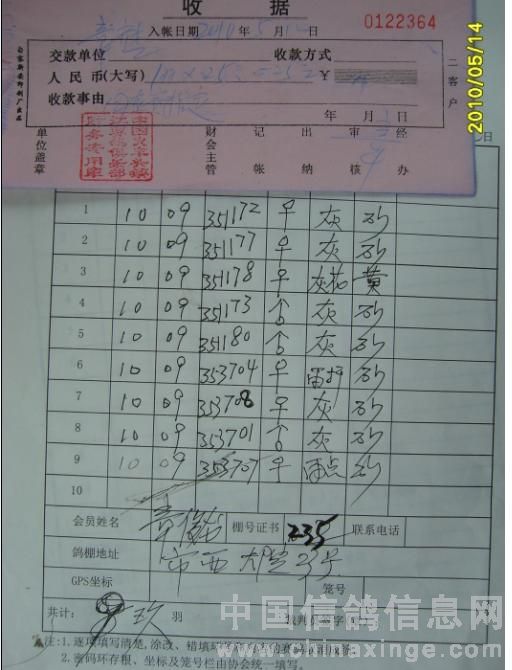 收 据
0122364
入帐日期 2010 年 5 月 14 日
交款单位 收款方式
人民币(大写) ¥
收款事由
年 月 日
二客户
单位盖章 财会主管 记帐 出纳 审核 经办
2010/05/14
日
1 10 09 351172 ♀ 灰 砂
2 10 09 351177 ♀ 灰 砂
3 10 09 351178 ♀ 灰花 黄
4 10 09 351173 ♂ 灰 砂
5 10 09 351180 ♂ 灰 砂
6 10 09 353704 ♀ 砂
7 10 09 353708 ♀ 灰 砂
8 10 09 353701 ♂ 灰 砂
9 10 09 353707 ♀ 雨点 砂
10
会员姓名 棚号证书 235 联系电话
鸽棚地址 市西
GPS坐标 笼号
共计: 羽
中国信鸽信息网
www.chinaxinge.com
注:1.逐项填写清楚,涂改、错填
2.密码环存根、坐标及笼号栏由协会统一填写。